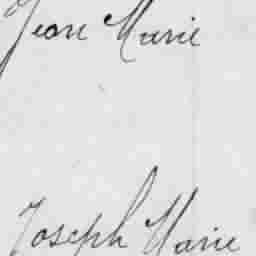 Jean Marie
Joseph Marie